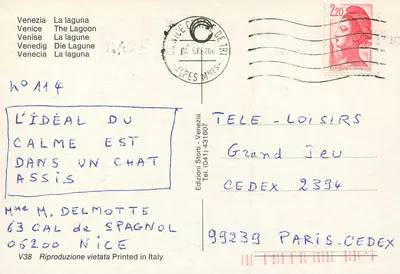 Venezia La laguna
Venice The Lagoon
Venise La lagune
Venedig Die Lagune
Venecia La laguna
2,20
N° 114
L'IDÉAL DU
CALME EST
DANS UN CHAT
ASSIS
Mme M. DELMOTTE
63 CAL de SPAGNOL
06200 NICE
V38 Riproduzione vietata Printed in Italy
Edizioni Storti - Venezia
Tel. (041) 431607
TELE-LOISIRS
Grand Jeu
CEDEX 2394
99239 PARIS-CEDEX